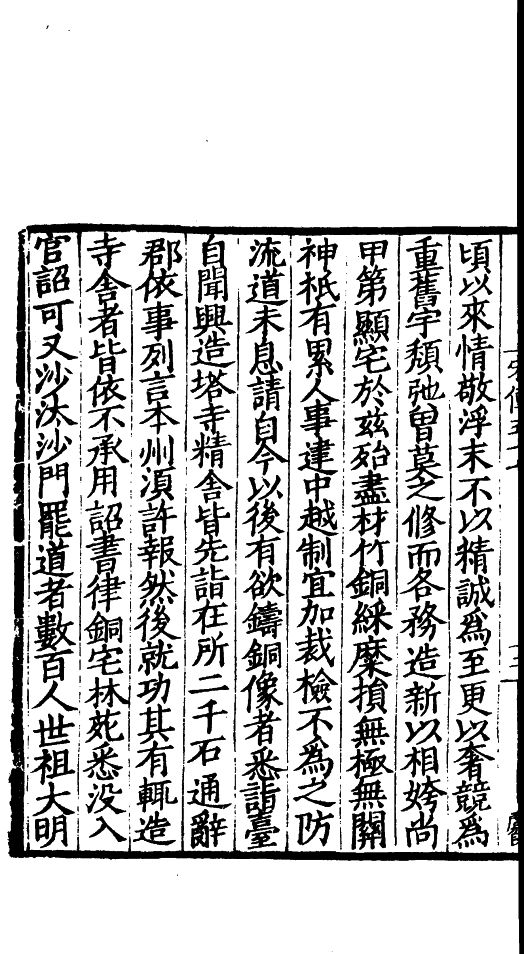 頃以來情敬浮末不以精誠爲至更以奢競爲
重舊宇頹弛曽莫之修而各務造新以相姱尚
甲第顯宅於兹殆盡材竹銅綵糜損無極無關
神祇有累人事違中越制宜加裁檢不爲之防
流道未息請自今以後有欲鑄銅像者悉詣臺
自聞興造塔寺精舎皆先詣在所二千石通辭
郡依事列言本州湏許報然後就功其有輒造
寺舎者皆依不承用詔書律銅宅林苑悉没入
官詔可又沙汰沙門罷道者數百人世祖大明